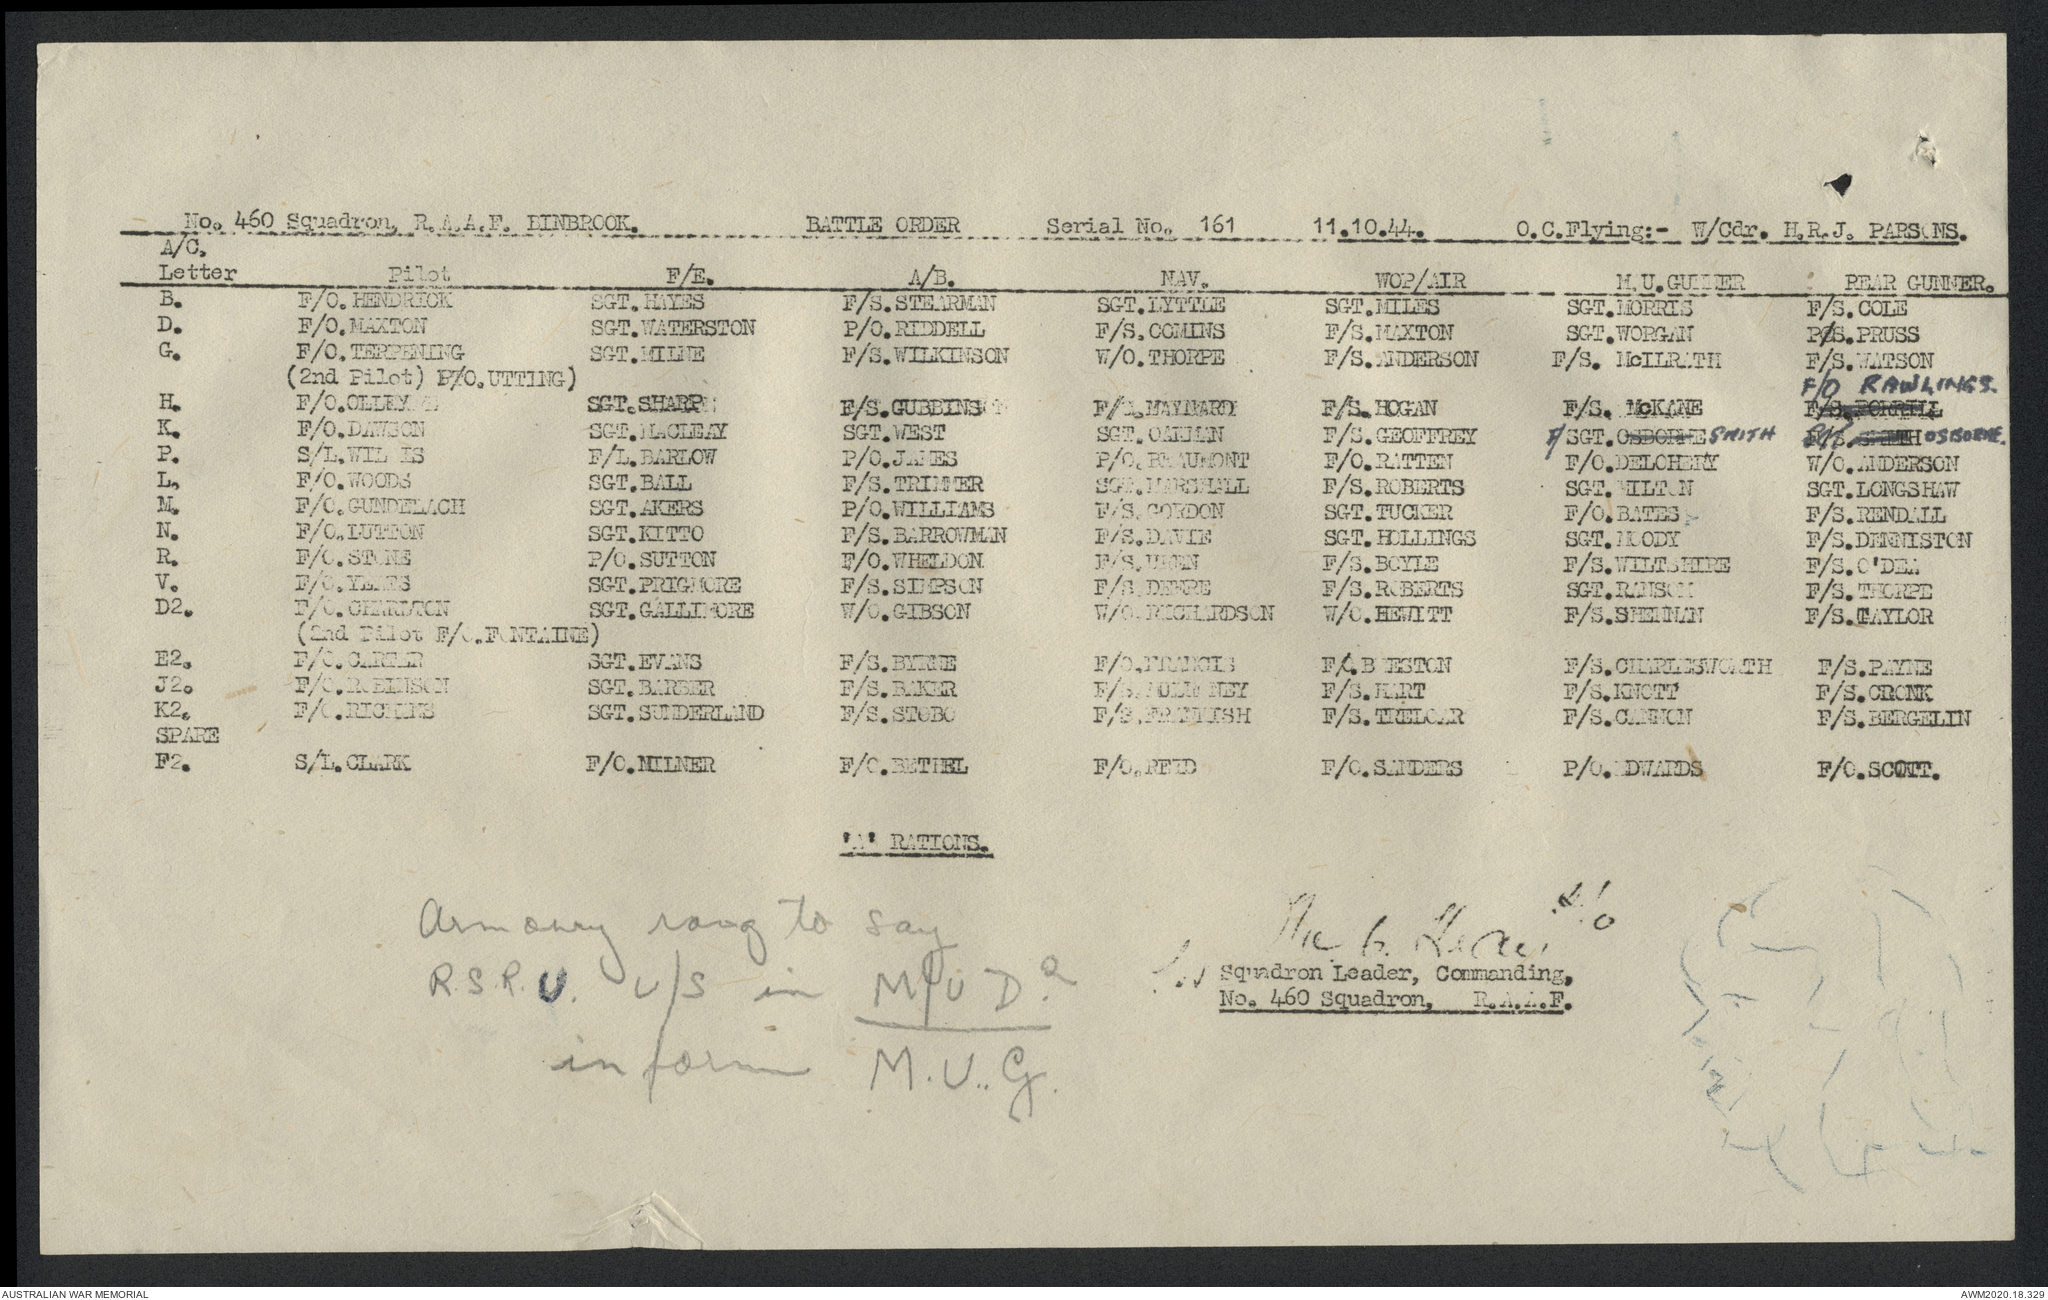 No. 460 Squadron, R.A.A.F. BINBROOK. BATTLE ORDER Serial No. 161 11.10.44. O.C.Flying:- W/Cdr. H.R.J. PARSONS.
A/C.
Letter Pilot F/E. A/B. NAV. WOP/AIR M.U.GUNNER REAR GUNNER.
B. F/O.HENDRICK SGT.HAYES F/S.STEARMAN SGT.LYTTLE SGT.MILES SGT.MORRIS F/S.COLE
D. F/O.MAXTON SGT.WATERSTON P/O.RIDDELL F/S.COMINS F/S.MAXTON SGT.WORGAN F/S.PRUSS
G. F/O.TERPENING SGT.MILNE F/S.WILKINSON W/O.THORPE F/S.ANDERSON F/S. McILRATH F/S.WATSON
(2nd Pilot) P/O.UTTING)
F/O RAWLINGS.
H. F/O.OLLEY SGT.SHARP F/S.GUBBINS F/S.MAYNARD F/S.HOGAN F/S. McKANE F/S.
K. F/O.DAWSON SGT.MACLEAY SGT.WEST SGT.OAKMAN F/S.GEOFFREY F/SGT.OSBORNE SMITH F/S.SMITH OSBORNE.
P. S/L.WILLIS F/L.BARLOW P/O.JAMES P/O.BEAUMONT F/O.RATTEN F/O.DELOHERY W/O.ANDERSON
L. F/O.WOODS SGT.BALL F/S.TRIMMER SGT.MARSHALL F/S.ROBERTS SGT.MILTON SGT.LONGSHAW
M. F/O.GUNDELACH SGT.AKERS P/O.WILLIAMS F/S.GORDON SGT.TUCKER F/O.BATES F/S.RENDALL
N. F/O.LUTTON SGT.KITTO F/S.BARROWMAN F/S.DAVIE SGT.HOLLINGS SGT.MOODY F/S.DENNISTON
R. F/O.STONE P/O.SUTTON F/O.WHELDON F/S.UREN F/S.BOYLE F/S.WILTSHIRE F/S.O'DEA
V. F/O.YEATES SGT.PRIGMORE F/S.SIMPSON F/S.DEERE F/S.ROBERTS SGT.RANSOM F/S.THORPE
D2. F/O.CHARLTON SGT.GALLIMORE W/O.GIBSON W/O.RICHARDSON W/O.HEWITT F/S.SHENNAN F/S.TAYLOR
(2nd Pilot F/O.FONTAINE)
E2. F/O.CARTER SGT.EVANS F/S.BYRNE F/O.FRANCIS F/O.BEESTON F/S.CHARLESWORTH F/S.PAYNE
J2. F/O.ROBINSON SGT.BARBER F/S.BAKER F/S. F/S.HART F/S.KNOTT F/S.CRONK
K2. F/O.RICHINS SGT.SUNDERLAND F/S.STOBO F/S.FRANKISH F/S.TRELOAR F/S.CANNON F/S.BERGELIN
SPARE
F2. S/L.CLARK F/O.MILNER F/O.BETHEL F/O.REID F/O.SANDERS P/O.EDWARDS F/O.SCOTT.
'A' RATIONS.
Armoury rang to say
R.S.R.U. U/S in M/U D?
inform M.U.G.
Squadron Leader, Commanding,
No. 460 Squadron, R.A.A.F.
AUSTRALIAN WAR MEMORIAL
AWM2020.18.329